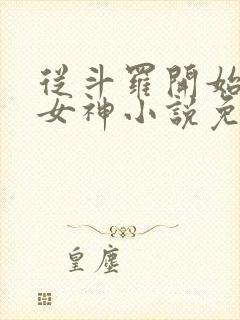 從斗羅開始
女神小說免
皇塵